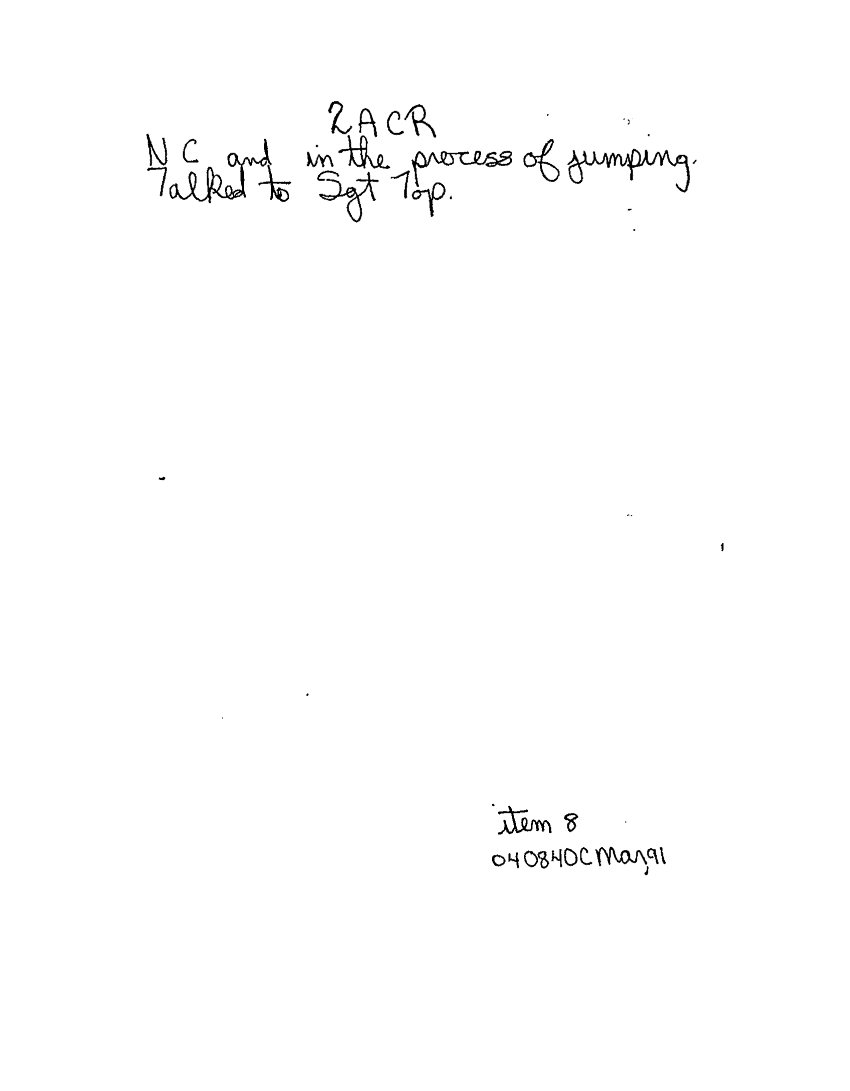 2ACR
NC and in the process of jumping.
Talked to Sgt Top.
item 8
040840C Mar, 91